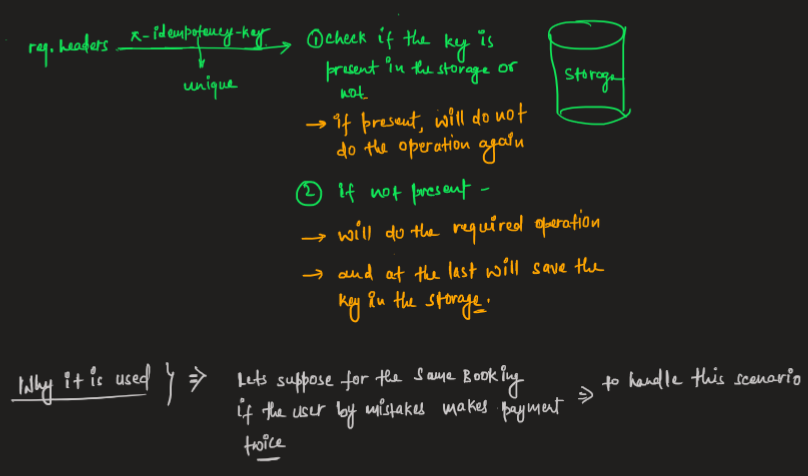 req. headers
x-idempotency-key
unique
① check if the key is
present in the storage or
not
→ if present, will do not
do the operation again
storage
② if not present -
→ will do the required operation
→ and at the last will save the
key in the storage.
Why it is used } ⇒
Lets suppose for the same Booking
if the user by mistakes makes payment
twice
⇒ to handle this scenario